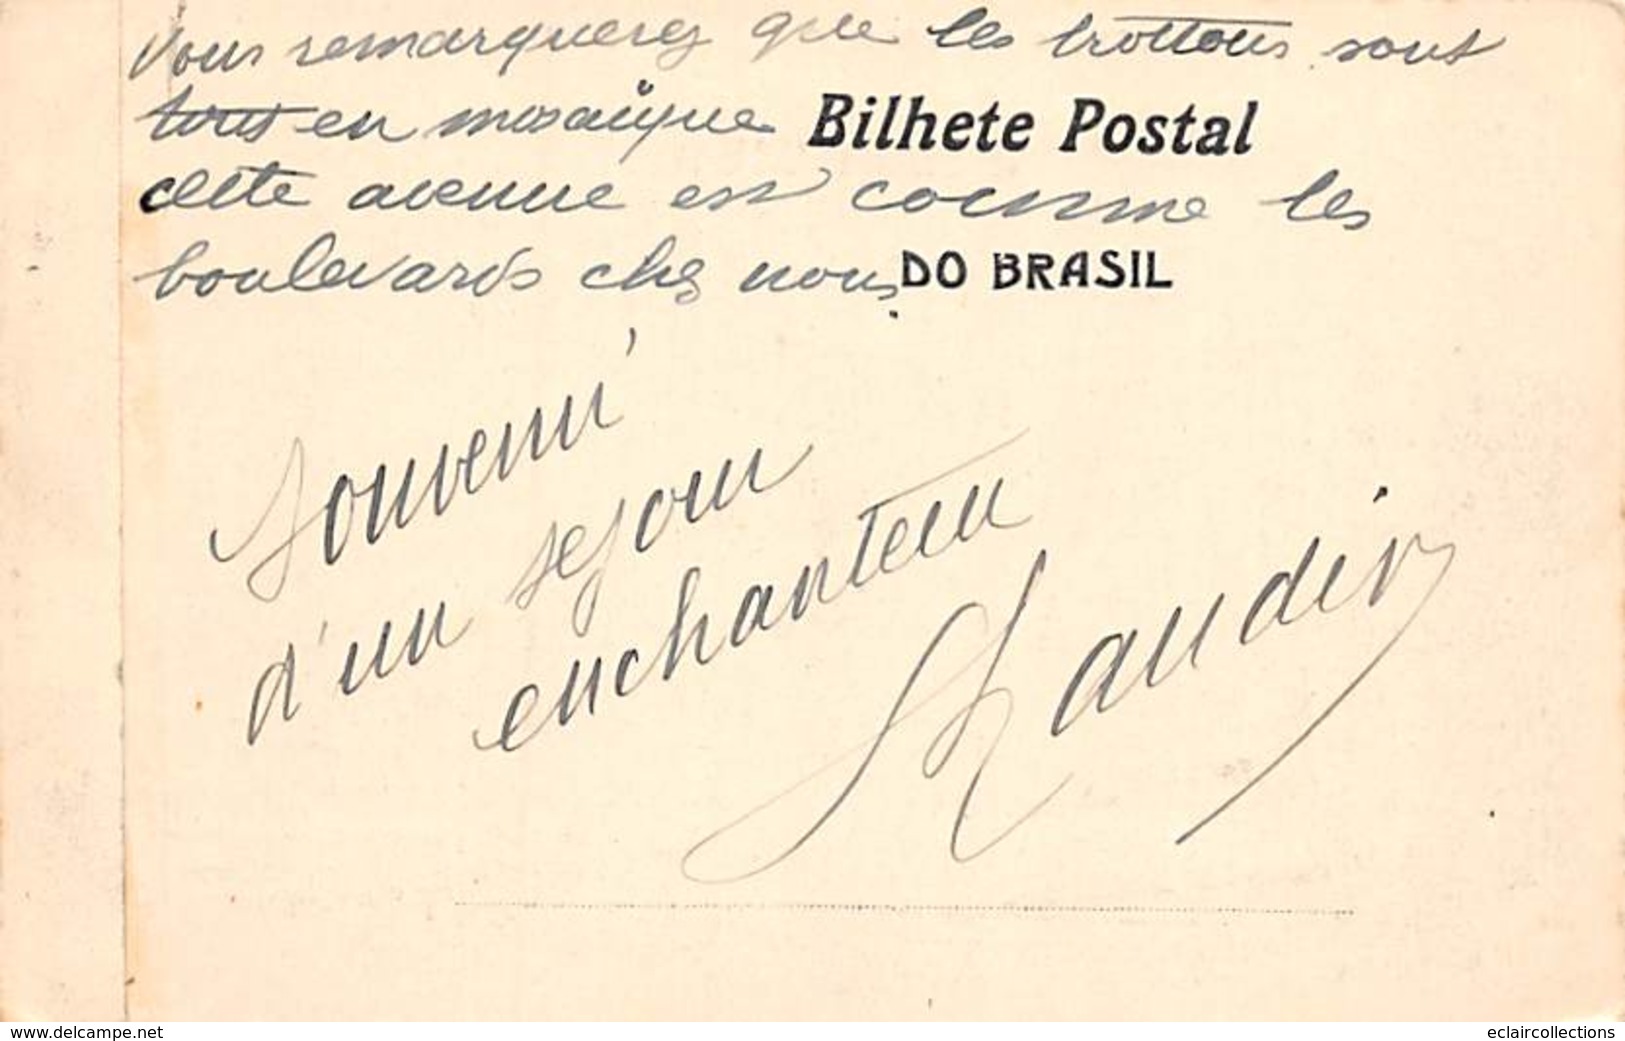 Vous remarquerez que les trottoirs sont
tous en mosaïque Bilhete Postal
cette avenue est comme les
boulevards chez nous. DO BRASIL
Souvenir
d'un sejour
enchanteur
www.delcampe.net
eclaircollections